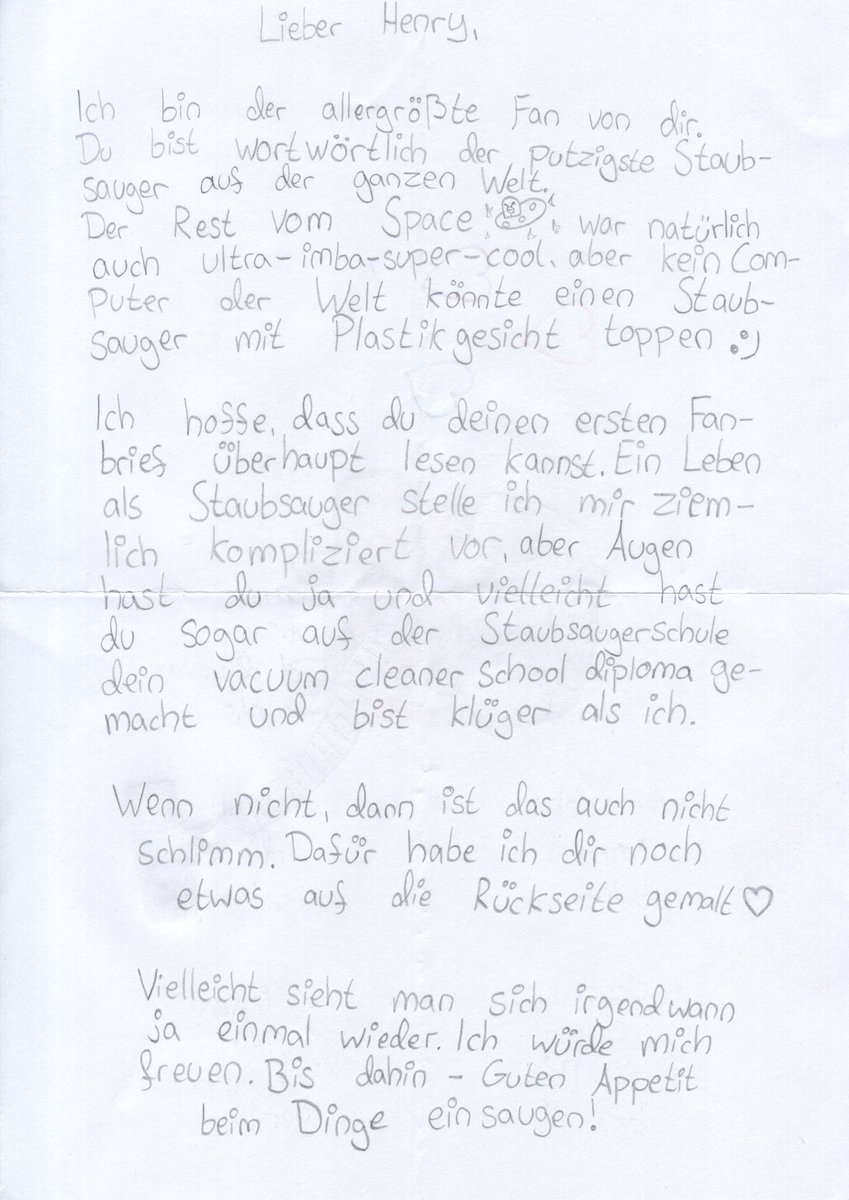 Lieber Henry,
Ich bin der allergrößte Fan von dir.
Du bist wortwörtlich der putzigste Staub-
sauger auf der ganzen Welt.
Der Rest vom Space war natürlich
auch ultra-imba-super-cool, aber kein Com-
puter der Welt könnte einen Staub-
sauger mit Plastikgesicht toppen :)
Ich hoffe, dass du deinen ersten Fan-
brief überhaupt lesen kannst. Ein Leben
als Staubsauger stelle ich mir ziem-
lich kompliziert vor, aber Augen
hast du ja und vielleicht hast
du sogar auf der Staubsaugerschule
dein vacuum cleaner school diploma ge-
macht und bist klüger als ich.
Wenn nicht, dann ist das auch nicht
schlimm. Dafür habe ich dir noch
etwas auf die Rückseite gemalt ♡
Vielleicht sieht man sich irgendwann
ja einmal wieder. Ich würde mich
freuen. Bis dahin - Guten Appetit
beim Dinge einsaugen!